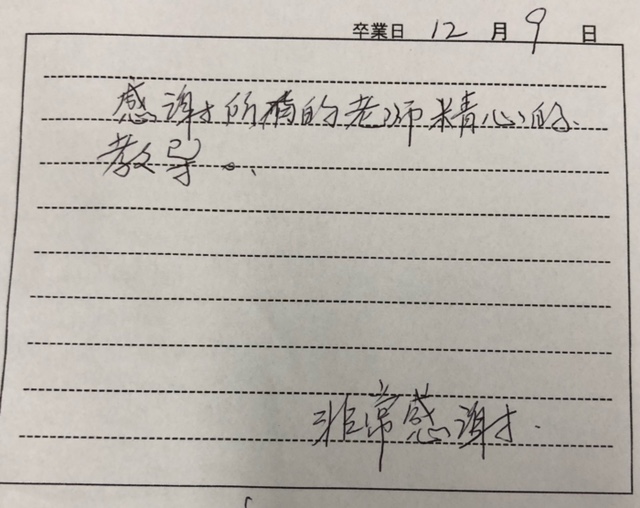 卒業日 12 月 9 日
感谢所有的老师精心的
教导。
非常感谢.